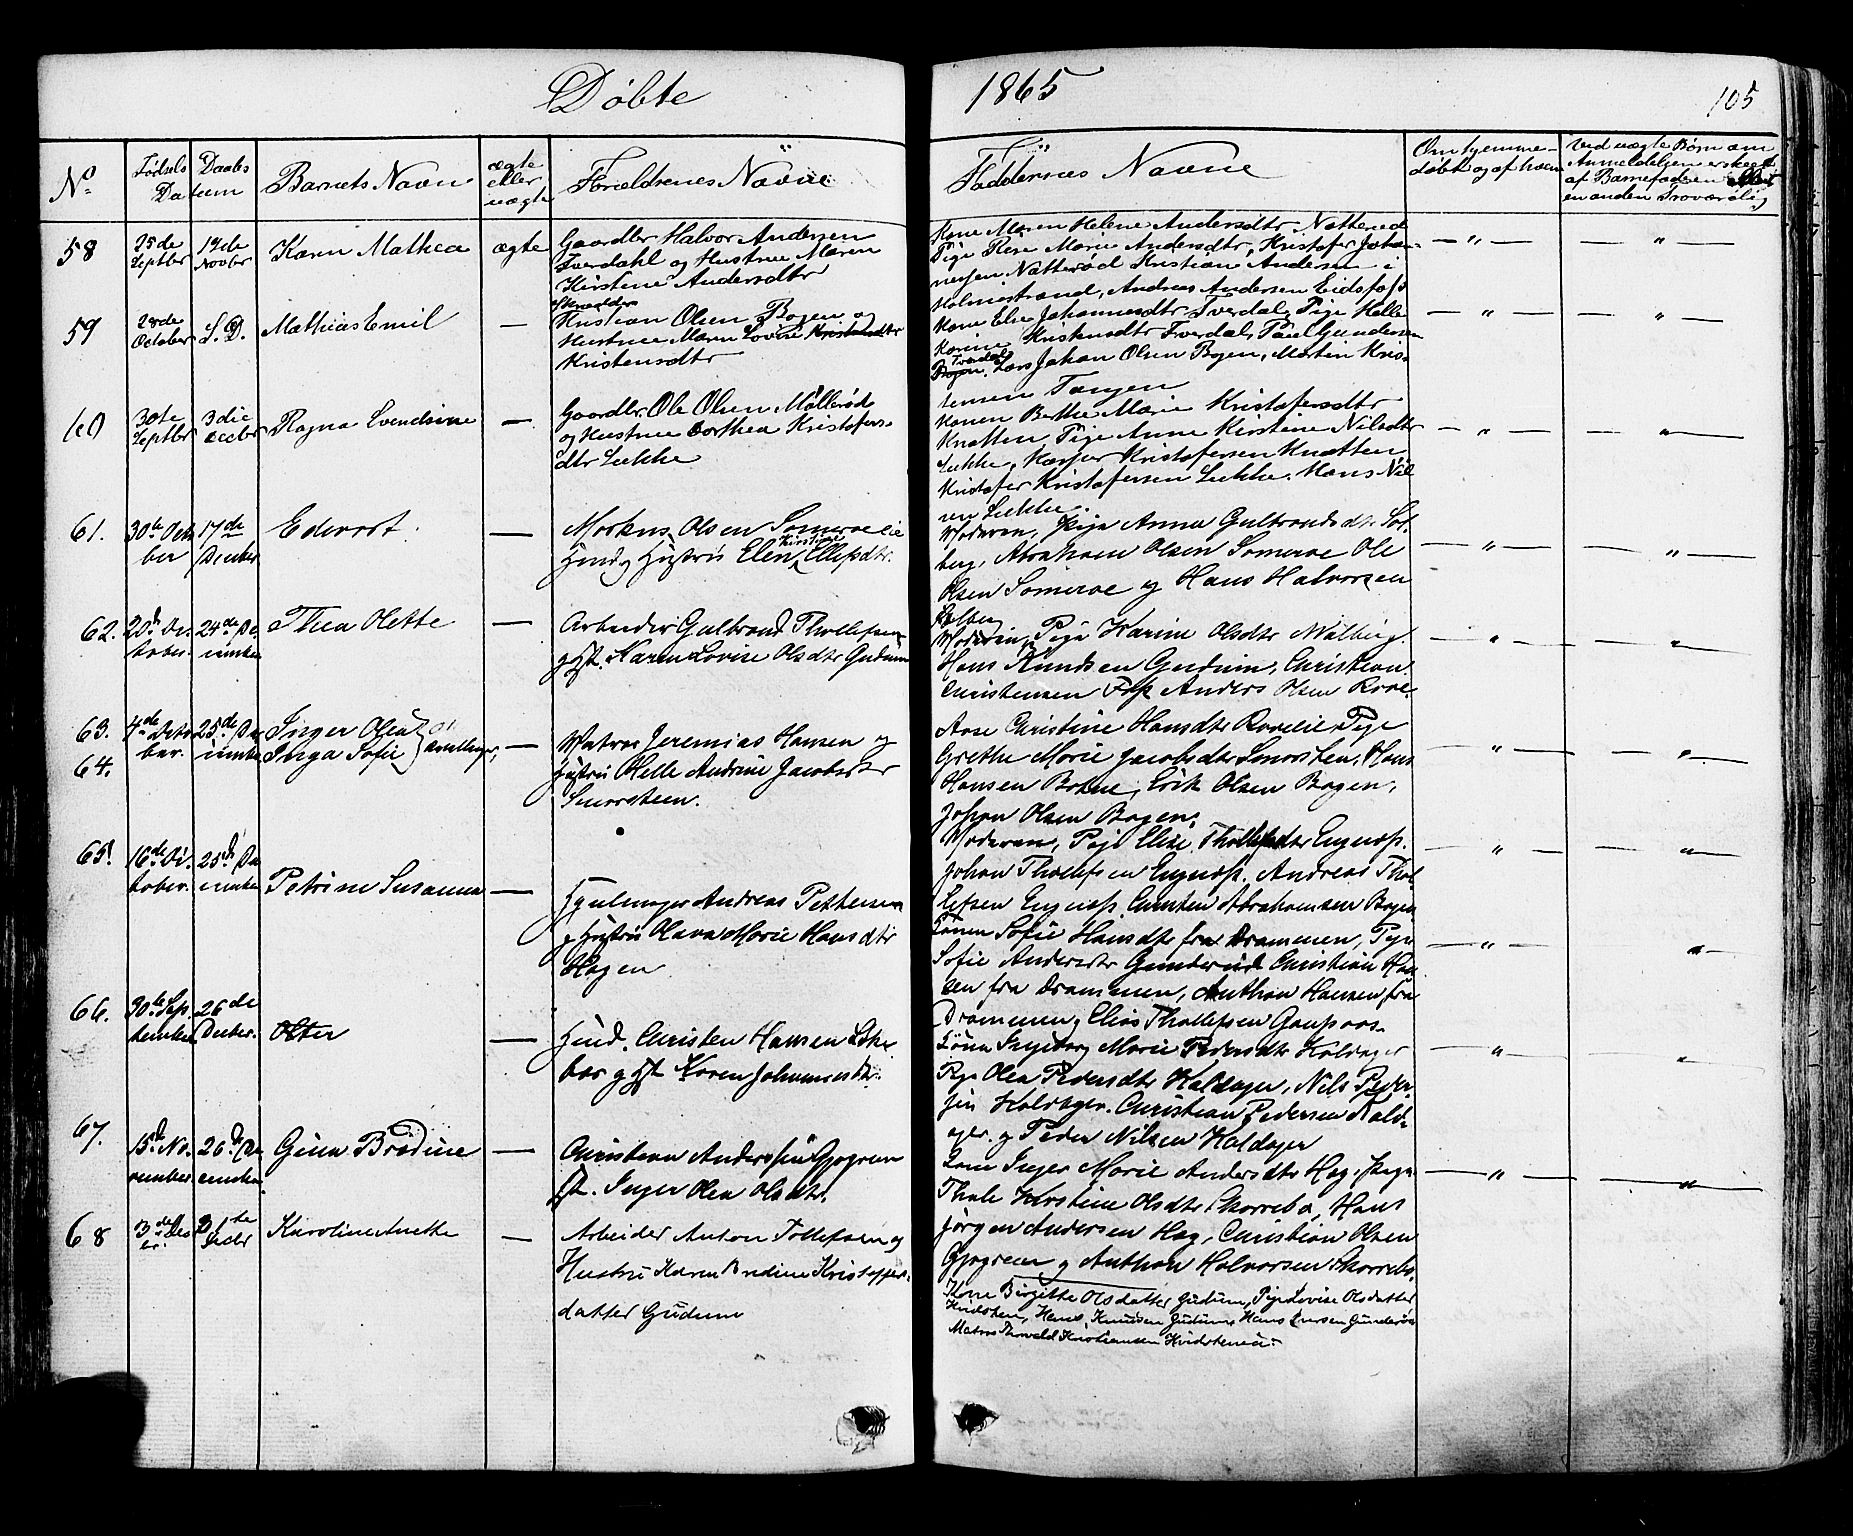 Døbte
1865
105
No.
Fødsels Daabs
Datum
Barnets Navn
ægte
eller
uægte
Forældrenes Navne
Faddernes Navne
Om hjemme-
døbt og af hvem
Ved uægte Børn om
Anmeldelsen er skeet
af Barnefaderen
en anden Troværdig
58
25de
Septbr
19de
Novbr
Karen Mathea
ægte
Gaardbr. Halvor Andersen
Tverdahl og Hustrue Maren
Kirstine Andersdtr
Kone Maren Helene Andersdtr Natterud
Pige Marie Andersdtr, Kristofer Johan-
nesen Natterød Kristian Andersen i
Holmestrand, Andreas Andersen Eidsfos
59
28de
October
S. D.
Mathias Emil
—
Kristian Olsen Bogen og
Hustrue Maren Lovise Kristensdtr
Kristensdtr
Kone Else Johannesdtr Tverdal, Pige Helle
Karine Kristensdtr Tverdal, Paul Gundersen
Tverdal
Bogen, Lars Johan Olsen Bogen, Martin Kris-
tensen Tangen
60
30te
Septbr
3die
Decbr
Ragna Svendsine
—
Gaardbr. Ole Olsen Møllerød
og Hustrue Dorthea Kristofers-
dtr Løkke
Konen Berthe Marie Kristofersdtr
Knatten, Pige Anne Kirstine Nilsdtr
Løkke, Kasper Kristofersen Knatten
Kristofer Kristofersen Løkke, Hans Nil
sen Løkke.
61.
30te Octo
ber
17de
Decbr
Edvart.
—
Markus Olsen Someroe eie
Kirstine
og Hustru Elen Ellefsdtr.
Moderen, Pige Anne Gulbrandsdtr Sol
berg, Abraham Olsen Someroe Ole
Olsen Someroe og Hans Halvorsen
Solberg
62.
20de Oc-
tober
24de De-
cember
Thea Olette
—
Arbeider Gulbrand Thollefsen
og Hst. Karen Lovise Olsdtr Gudum
Moderen, Pige Karine Olsdtr Mølberg
Hans Knudsen Gudum, Christian
Christensen Anders Olsen Roae.
63.
64.
4de Octo
ber.
25de De
cember
Inger Olea
Inga Sofie
tvillinger,
—
Matros Jeremias Hansen og
Hustru Helle Andrine Jacobsdtr
Snarsteen.
Ane Christine Hansdtr Pige
Grethe Marie Jacobsdtr Snarsten, Hans
Hansen Erik Olsen Bogen,
Johan Olsen Bogen,
65.
16de Oc-
tober.
25de De
cember
Petrine Susanna
—
Hjulmager Andreas Pettersen
og Hustru Olava Marie Hansdtr
Hagen
Moderen, Pige Elise Thollefsdtr
Johan Thollefsen Andreas Thol
lefsen Christen Abrahamsen Bogen
66.
30te Sep
tember
26de
Decbr.
Olter
—
Huusd. Christen Hansen
og Hst Karen Johannesdtr.
Konen Sofie Hansdtr fra Drammen, Pige
Sofie Andersdtr Gunderud Christian Han
sen fra Drammen, Anthon Hansen fra
Drammen, Elias Thollefsen
67.
15de No-
vember
26de De
cember
Gina Bredine
—
Christian Andersen Gjøgrein
Hst. Inger Olea Olsdtr.
Kone Ingeborg Marie Pedersdtr Holdager
Pige Olea Pedersdtr Holdager, Nils Peder-
sen Holdager. Christian Pedersen Hold-
ager. og Peder Nilsen Holdager
Kone Inger Marie Andersdtr Hag, Pige
Thale Kirstine Olsdtr Skorrebo, Hans
Jørgen Andersen Hag, Christian Olsen
Gjøgrein og Anthon Halvorsen Skorrebo.
68
Karoline Anette
—
Arbeider Anton Tollefsen og
Hustru Karen Bredine Kristoffers-
datter Gudum
Kone Birgitte Olsdatter Gudum, Pige Lovise Olsdatter
Hvidsten, Hans Knudsen Gudum, Hans Iversen Gunderød
Matros Thorvald Kristiansen Hvidstenen.